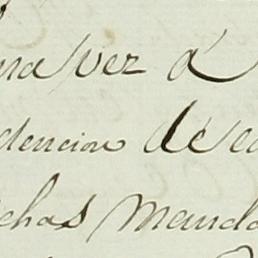 na vez á
dencion de
chas manda